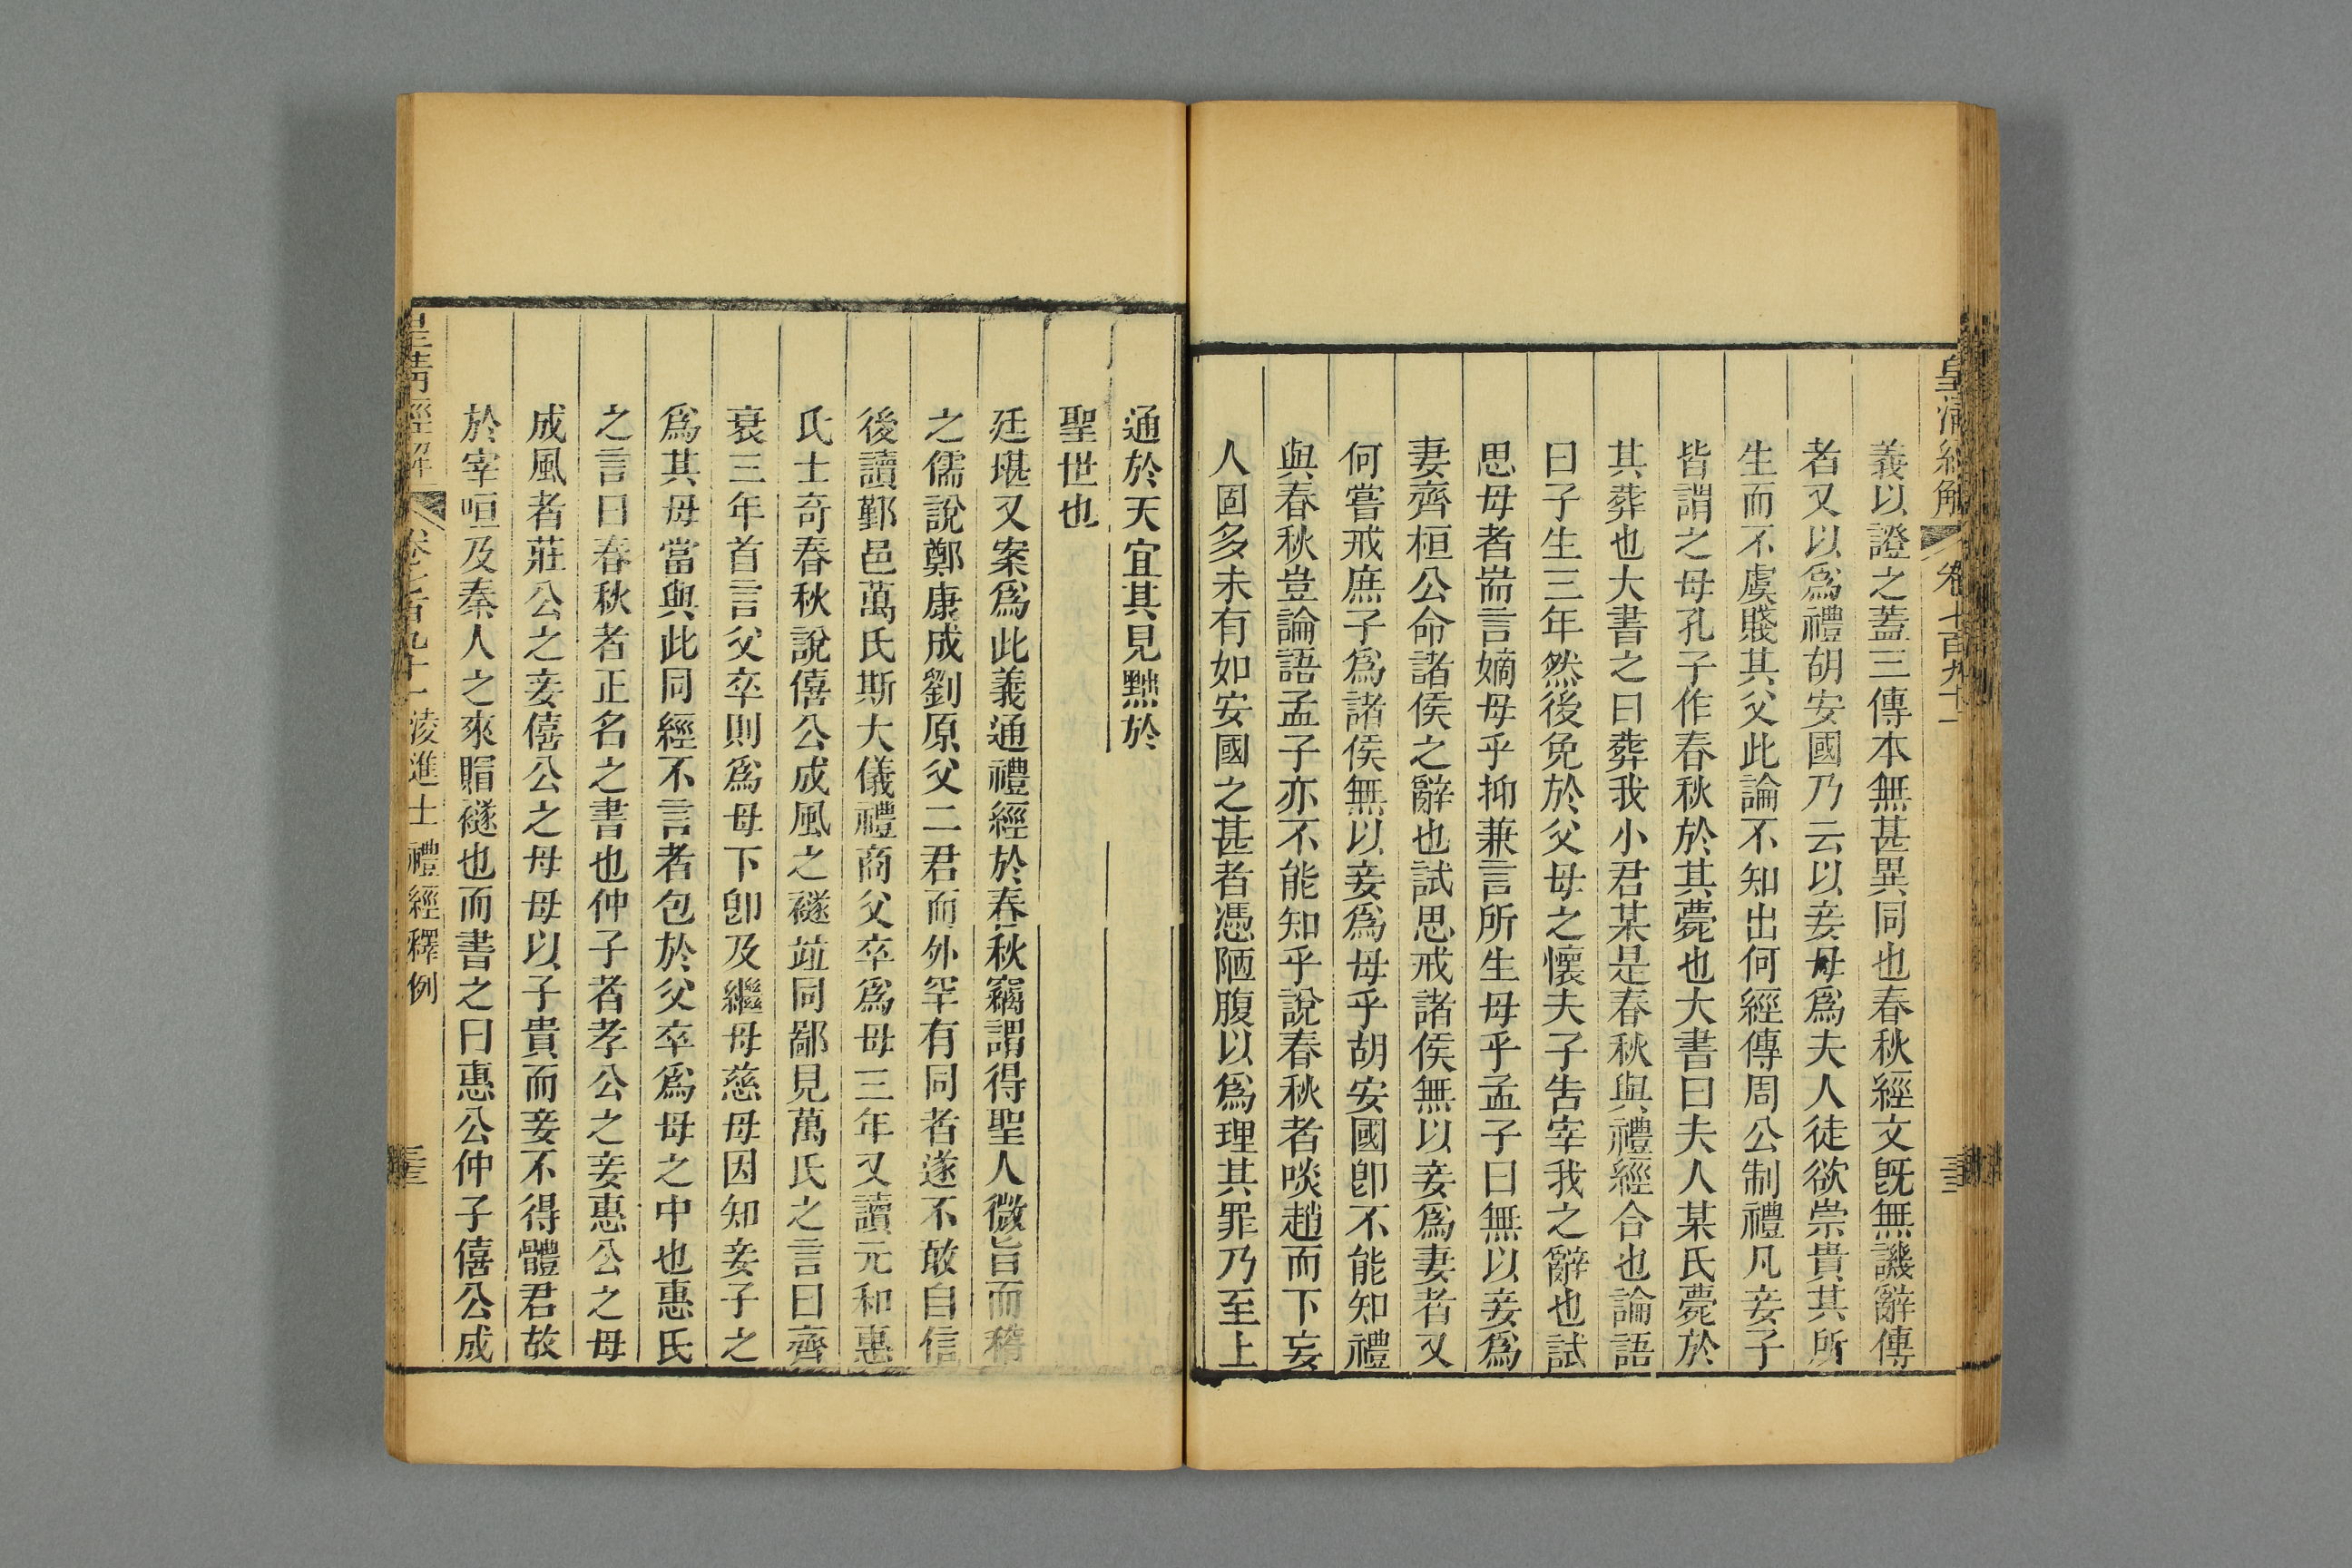 皇清經解
卷七百九十一
義以證之蓋三傳本無甚異同也春秋經文旣無譏辭傳
者又以爲禮胡安國乃云以妾母爲夫人徒欲崇貴其所
生而不虞賤其父此論不知出何經傳周公制禮凡妾子
皆謂之母孔子作春秋於其薨也大書曰夫人某氏薨於
其葬也大書之曰葬我小君某是春秋與禮經合也論語
曰子生三年然後免於父母之懷夫子告宰我之辭也試
思母者耑言嫡母乎抑兼言所生母乎孟子曰無以妾爲
妻齊桓公命諸侯之辭也試思戒諸侯無以妾爲妻者又
何嘗戒庶子爲諸侯無以妾爲母乎胡安國卽不能知禮
與春秋豈論語孟子亦不能知乎說春秋者啖趙而下妄
人固多未有如安國之甚者憑陋腹以爲理其罪乃至上
通於天宜其見黜於
聖世也
廷堪又案爲此義通禮經於春秋竊謂得聖人微旨而稽
之儒說鄭康成劉原父二君而外罕有同者遂不敢自信
後讀鄞邑萬氏斯大儀禮商父卒爲母三年又讀元和惠
氏士奇春秋說僖公成風之襚竝同鄙見萬氏之言曰齊
衰三年首言父卒則爲母下卽及繼母慈母因知妾子之
爲其母當與此同經不言者包於父卒爲母之中也惠氏
之言曰春秋者正名之書也仲子者孝公之妾惠公之母
成風者莊公之妾僖公之母母以子貴而妾不得體君故
於宰咺及秦人之來賵襚也而書之曰惠公仲子僖公成
皇清經解
卷七百九十一
淩進士禮經釋例